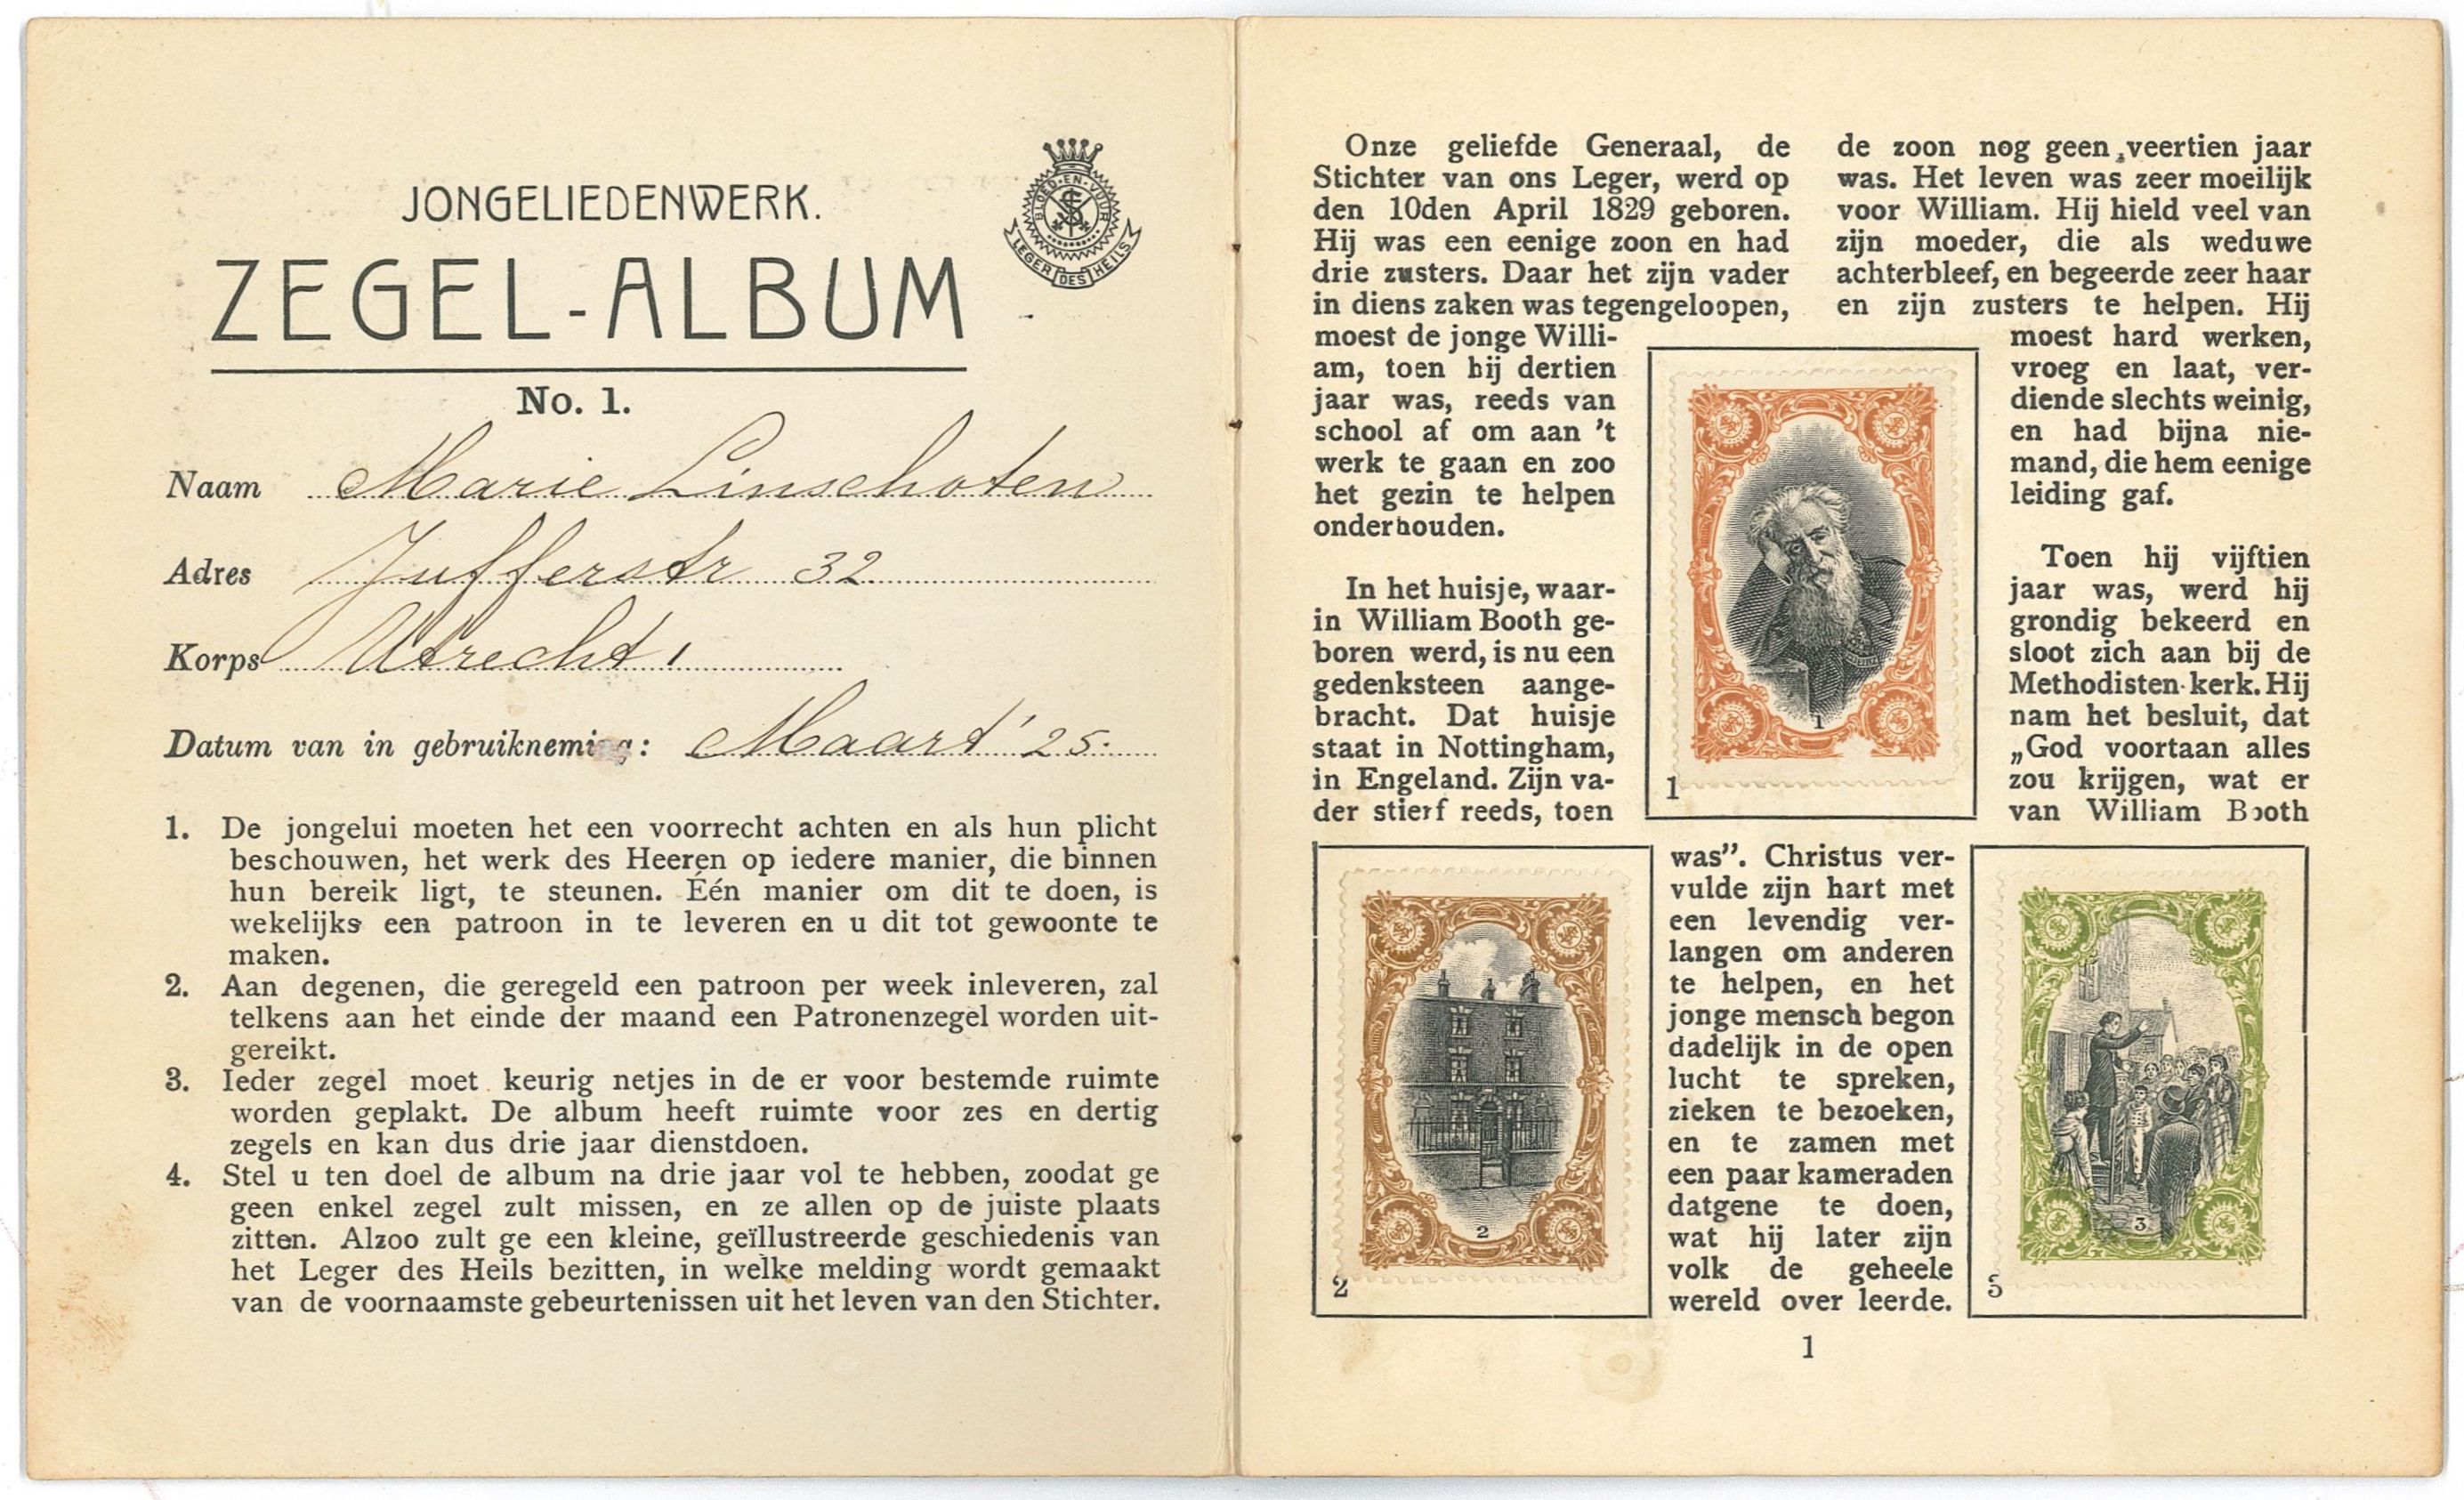 JONGELIEDENWERK.
ZEGEL-ALBUM
BLOED·EN·VUUR
LEGER DES HEILS
No. 1.
Naam Marie Linschoten
Adres Jufferstr 32
Korps Utrecht 1
Datum van in gebruikneming: Maart '25.
1. De jongelui moeten het een voorrecht achten en als hun plicht
beschouwen, het werk des Heeren op iedere manier, die binnen
hun bereik ligt, te steunen. Één manier om dit te doen, is
wekelijks een patroon in te leveren en u dit tot gewoonte te
maken.
2. Aan degenen, die geregeld een patroon per week inleveren, zal
telkens aan het einde der maand een Patronenzegel worden uit-
gereikt.
3. Ieder zegel moet keurig netjes in de er voor bestemde ruimte
worden geplakt. De album heeft ruimte voor zes en dertig
zegels en kan dus drie jaar dienstdoen.
4. Stel u ten doel de album na drie jaar vol te hebben, zoodat ge
geen enkel zegel zult missen, en ze allen op de juiste plaats
zitten. Alzoo zult ge een kleine, geïllustreerde geschiedenis van
het Leger des Heils bezitten, in welke melding wordt gemaakt
van de voornaamste gebeurtenissen uit het leven van den Stichter.
Onze geliefde Generaal, de
Stichter van ons Leger, werd op
den 10den April 1829 geboren.
Hij was een eenige zoon en had
drie zusters. Daar het zijn vader
in diens zaken was tegengeloopen,
moest de jonge Willi-
am, toen hij dertien
jaar was, reeds van
school af om aan 't
werk te gaan en zoo
het gezin te helpen
onderhouden.
In het huisje, waar-
in William Booth ge-
boren werd, is nu een
gedenksteen aange-
bracht. Dat huisje
staat in Nottingham,
in Engeland. Zijn va-
der stierf reeds, toen
de zoon nog geen veertien jaar
was. Het leven was zeer moeilijk
voor William. Hij hield veel van
zijn moeder, die als weduwe
achterbleef, en begeerde zeer haar
en zijn zusters te helpen. Hij
moest hard werken,
vroeg en laat, ver-
diende slechts weinig,
en had bijna nie-
mand, die hem eenige
leiding gaf.
Toen hij vijftien
jaar was, werd hij
grondig bekeerd en
sloot zich aan bij de
Methodisten-kerk. Hij
nam het besluit, dat
„God voortaan alles
zou krijgen, wat er
van William Booth
was”. Christus ver-
vulde zijn hart met
een levendig ver-
langen om anderen
te helpen, en het
jonge mensch begon
dadelijk in de open
lucht te spreken,
zieken te bezoeken,
en te zamen met
een paar kameraden
datgene te doen,
wat hij later zijn
volk de geheele
wereld over leerde.
1
1
2
2
3
3
1